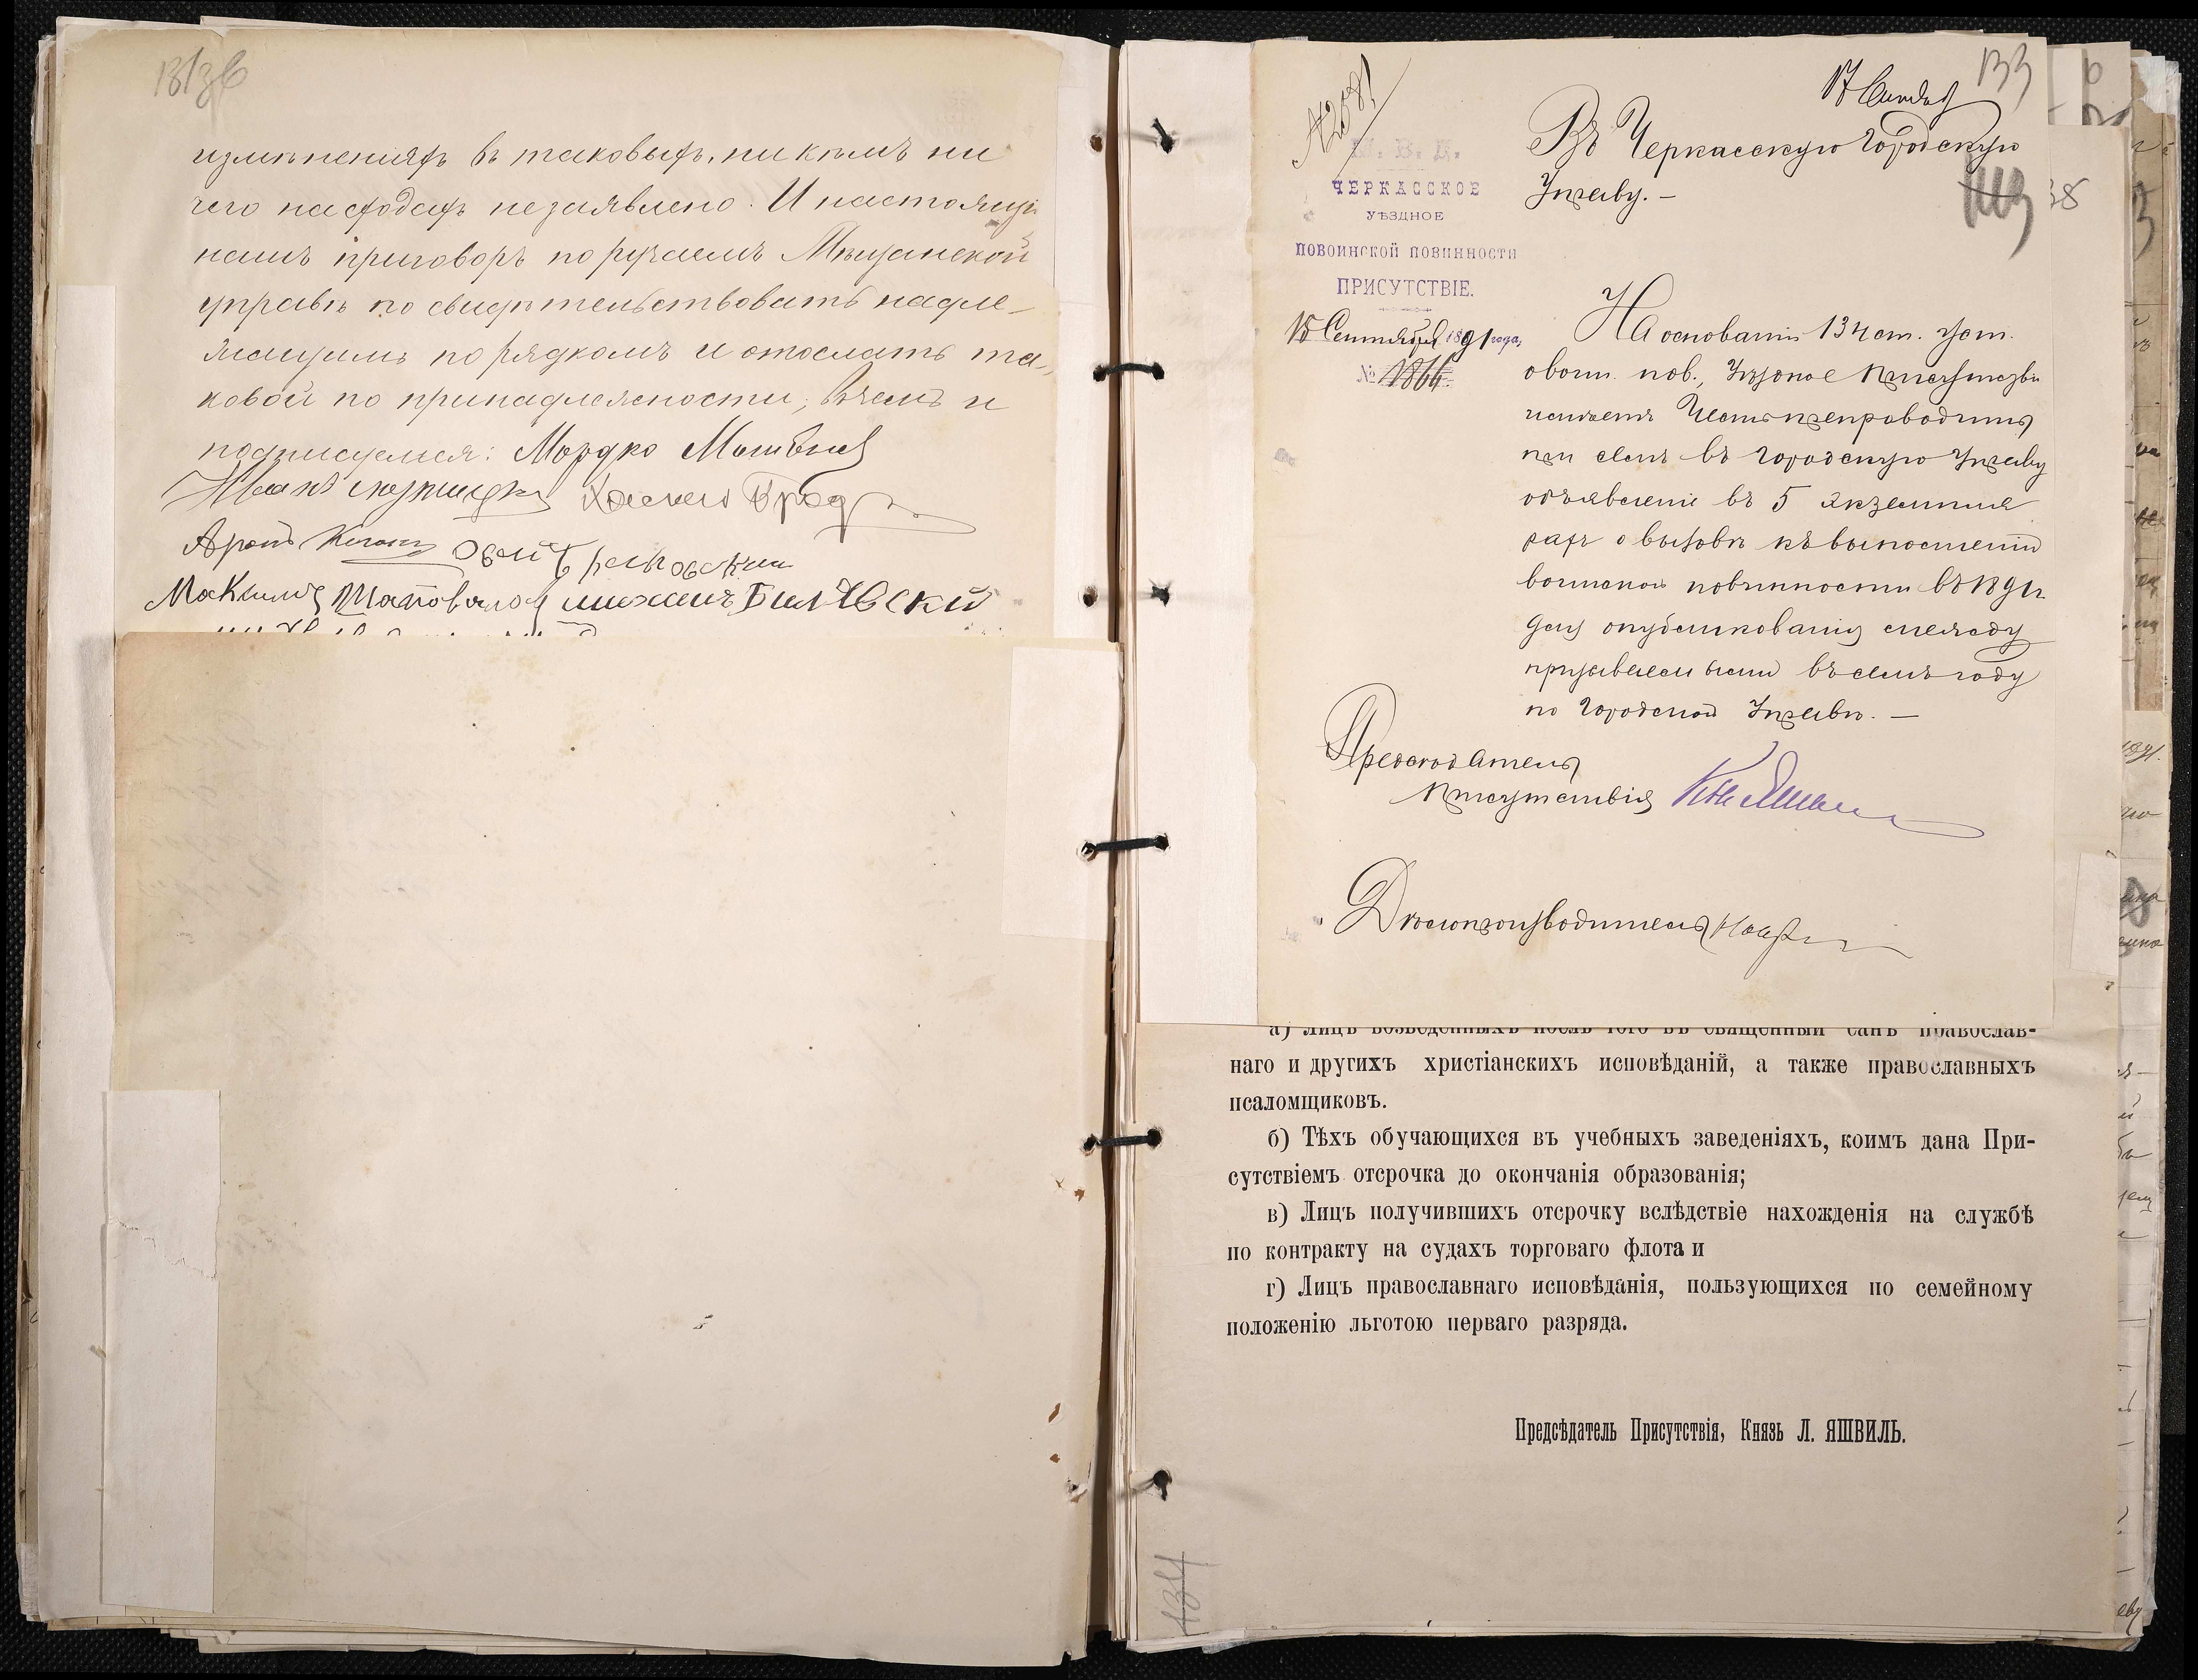 измѣненіяхъ въ таковыхъ, никѣмъ ни
чего насходахъ незаявлено. И настоящій
нашъ приговоръ поручаемъ Мѣщанской
управѣ по свидѣтельствовать надле-
жащимъ порядкомъ и отослать та-
ковой по принадлежности, въ чемъ и
подписуемся: Мордко
Иванъ
Аронъ
Максимъ Шаповалов михаилъ Билѣвскій
133
17 Сентября
Въ Черкасскую Городскую
Управу. —
М. В. Д.
ЧЕРКАССКОЕ
УѢЗДНОЕ
ПОВОИНСКОЙ ПОВИННОСТИ
ПРИСУТСТВІЕ.
15 Сентября 1891 года,
№ 1864
На основаніи 134 ст. уст.
о воин. пов., Уѣздное Присутствіе
имѣетъ честь препроводить
при семъ въ Городскую Управу
объявленіе въ 5 экземпля
рахъ о вызовѣ къ выполненію
воинской повинности въ 1891 г.
для опубликованія между
призываемыми въ семъ году
по Городской Управѣ. —
Предсѣдатель
Присутствія Кн. Яшвиль
Дѣлопроизводитель
а) Лицъ возведенныхъ послѣ того въ священный санъ православ-
наго и другихъ христіанскихъ исповѣданій, а также православныхъ
псаломщиковъ.
б) Тѣхъ обучающихся въ учебныхъ заведеніяхъ, коимъ дана При-
сутствіемъ отсрочка до окончанія образованія;
в) Лицъ получившихъ отсрочку вслѣдствіе нахожденія на службѣ
по контракту на судахъ торговаго флота и
г) Лицъ православнаго исповѣданія, пользующихся по семейному
положенію льготою перваго разряда.
Предсѣдатель Присутствія, Князь Л. ЯШВИЛЬ.
134